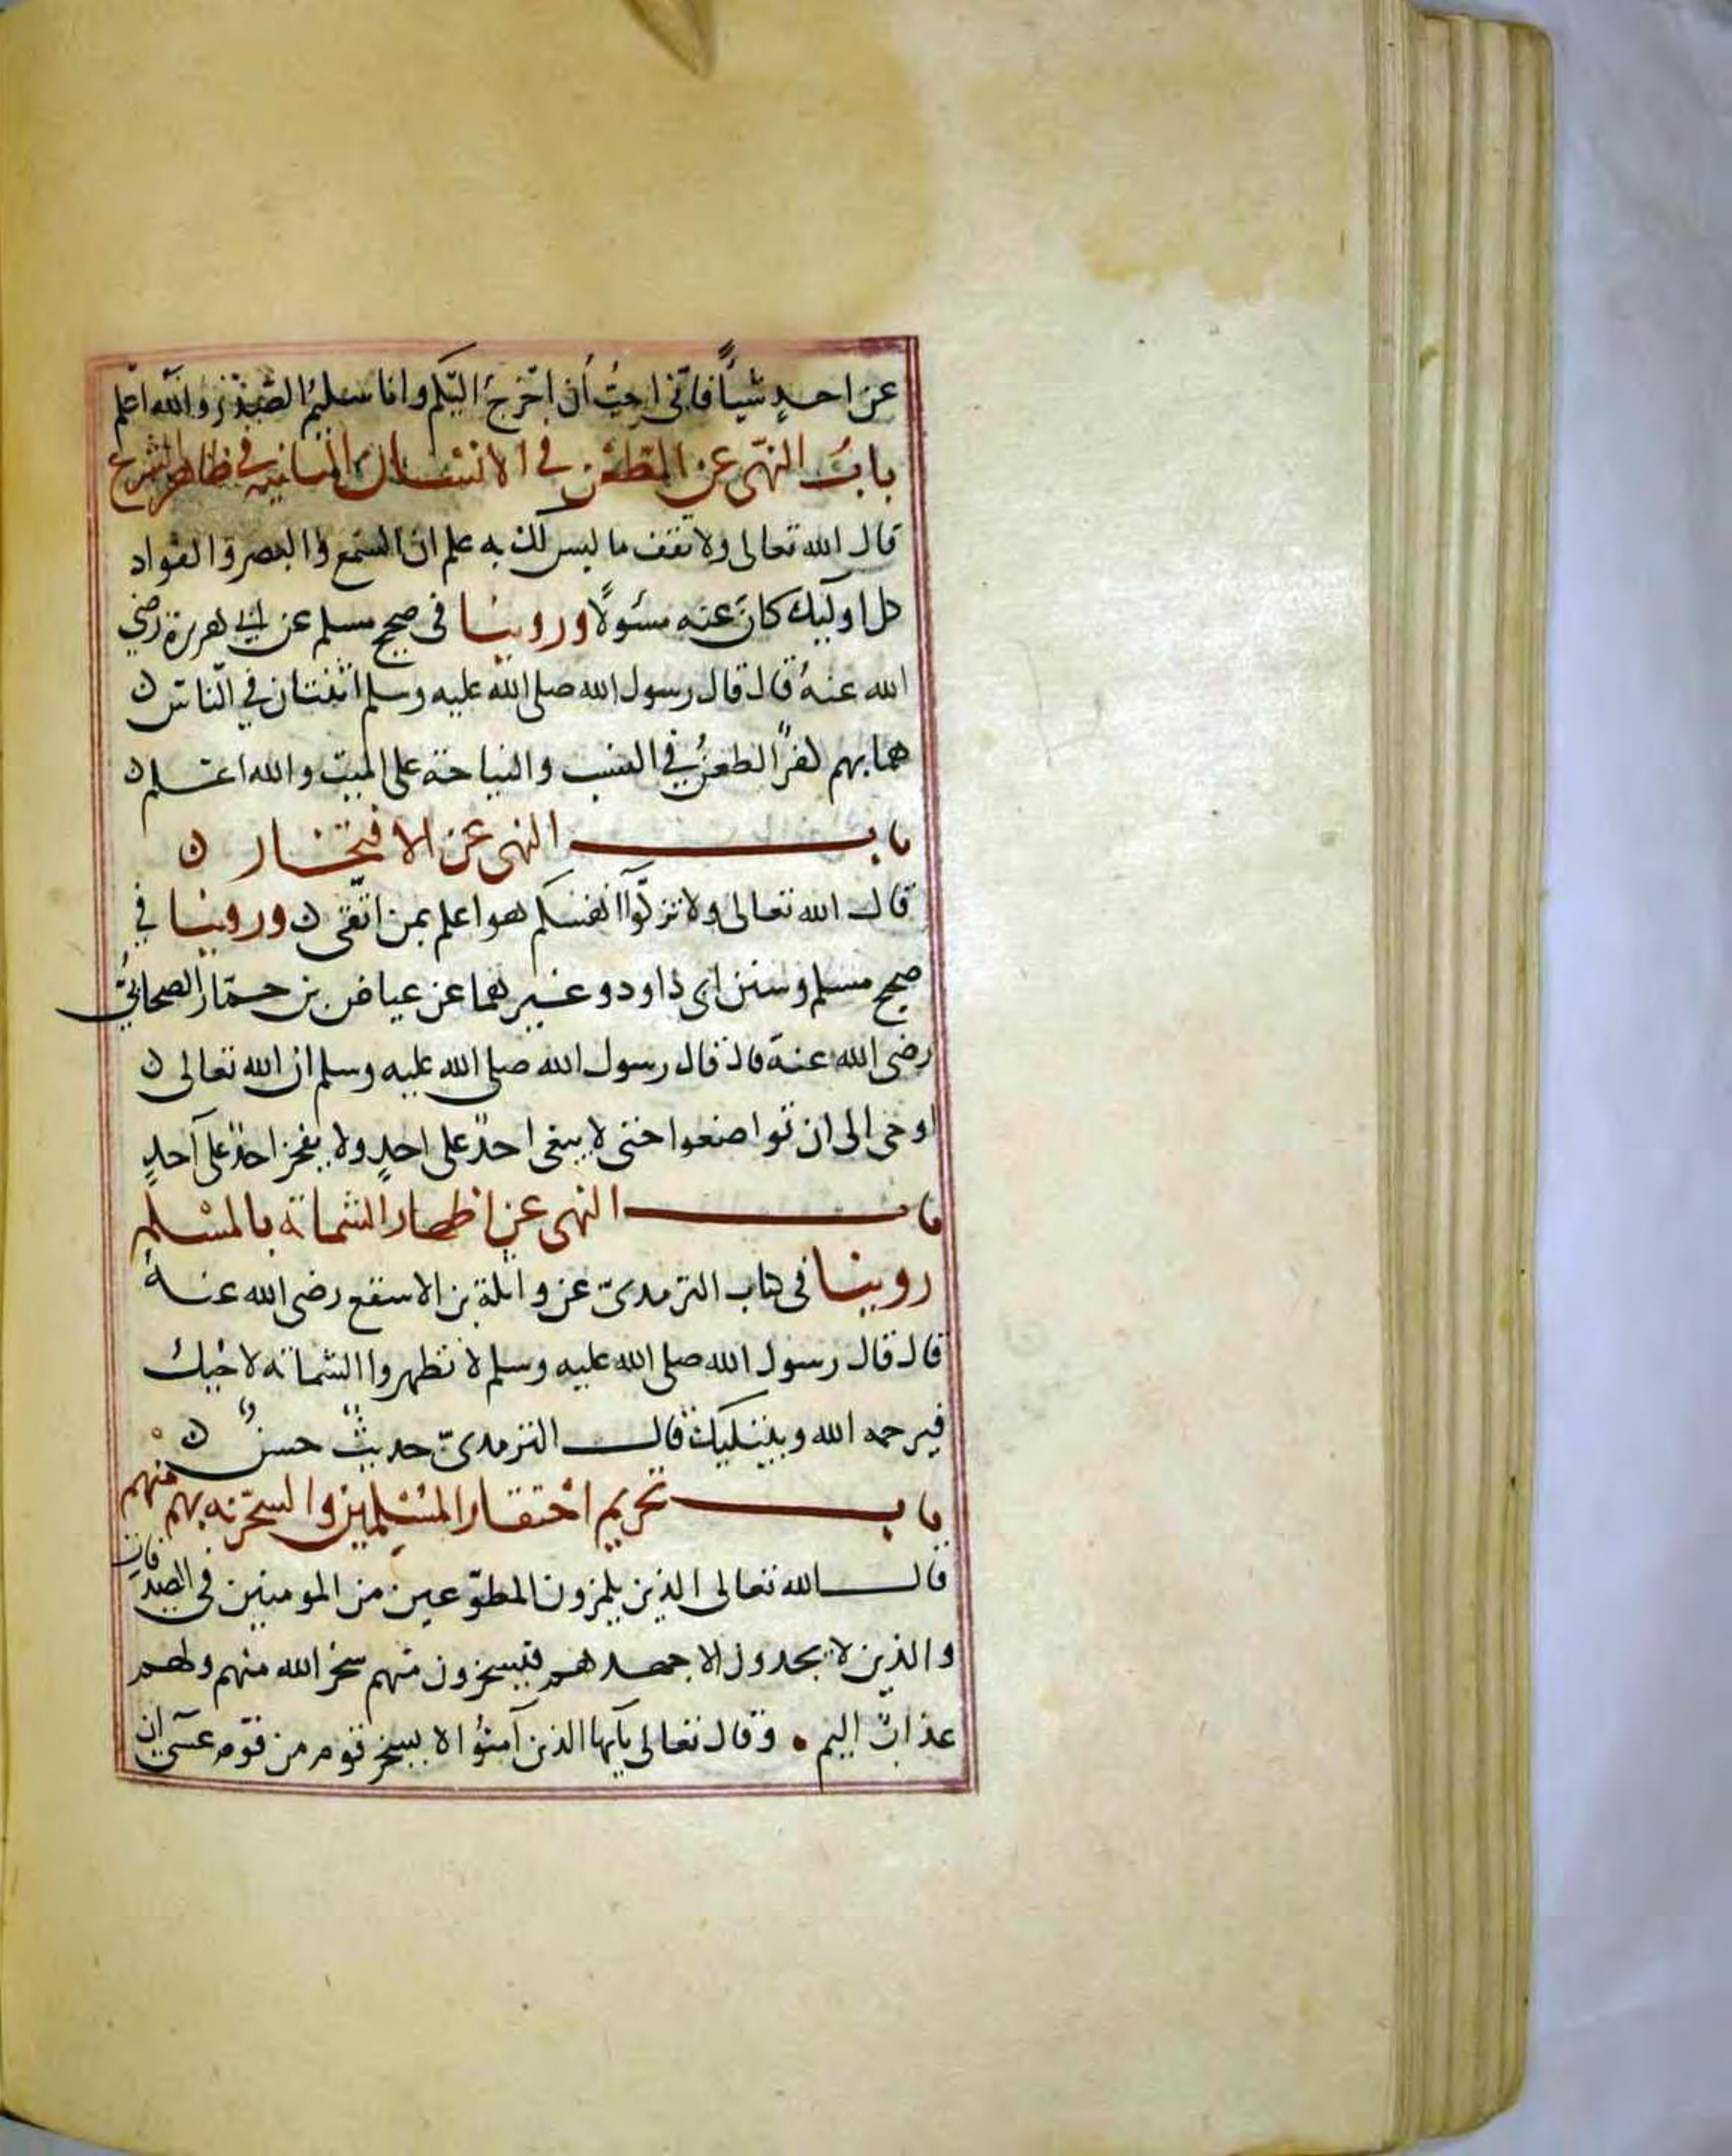 عن احدٍ شيأً فانّى احبُّ أن اخرجَ اليكم وانا سليمُ الصدر والله اعلم
بابُ النهى عن الطعن في الانساب الثابتة في ظاهر الشرع
قال الله تعالى ولا تقف ما ليس لك به علم ان السّمع والبصر والفواد
كل اوليك كان عنه مسئولاً وروينا فى صحيح مسلم عن ابي هريرة رضي
الله عنهُ قال قال رسول الله صلى الله عليه وسلم اثنتان في النّاس ن
هما بهم كفرٌ الطعنُ في النسب والنياحة على الميت والله اعلم ن
باب النهى عن الافتخار ن
قال الله تعالى ولا تزكّوا انفسكم هو اعلم بمن اتّقى ن وروينا في
صحيح مسلم وسنن ابى داود وغيرهما عن عياض بن حمّار الصحابيّ
رضى الله عنه قال قال رسول الله صلى الله عليه وسلم ان الله تعالى ن
اوحى الى ان تواضعوا حتى لا يبغى احدٌ على احدٍ ولا يفخر احدٌ على احدٍ
باب النهى عن اظهار الشماتة بالمسلم
روينا فى كتاب الترمدىّ عن واثلة بن الاسقع رضى الله عنهُ
قال قال رسول الله صلى الله عليه وسلم لا تظهروا الشماتة لاخيك
فيرحمه الله ويبتليك قال الترمدىّ حديثٌ حسنٌ ن
باب تحريم احتقار المسلمين والسخرية بهم منهم
قال الله تعالى الذين يلمزون المطوّعين من المومنين فى الصدقات
والذين لا يجدون الا جهدهم فيسخرون منهم سخر الله منهم ولهم
عذابٌ اليم • وقال تعالى يآيها الذين آمنُوا لا يسخر قوم من قوم عسى ان